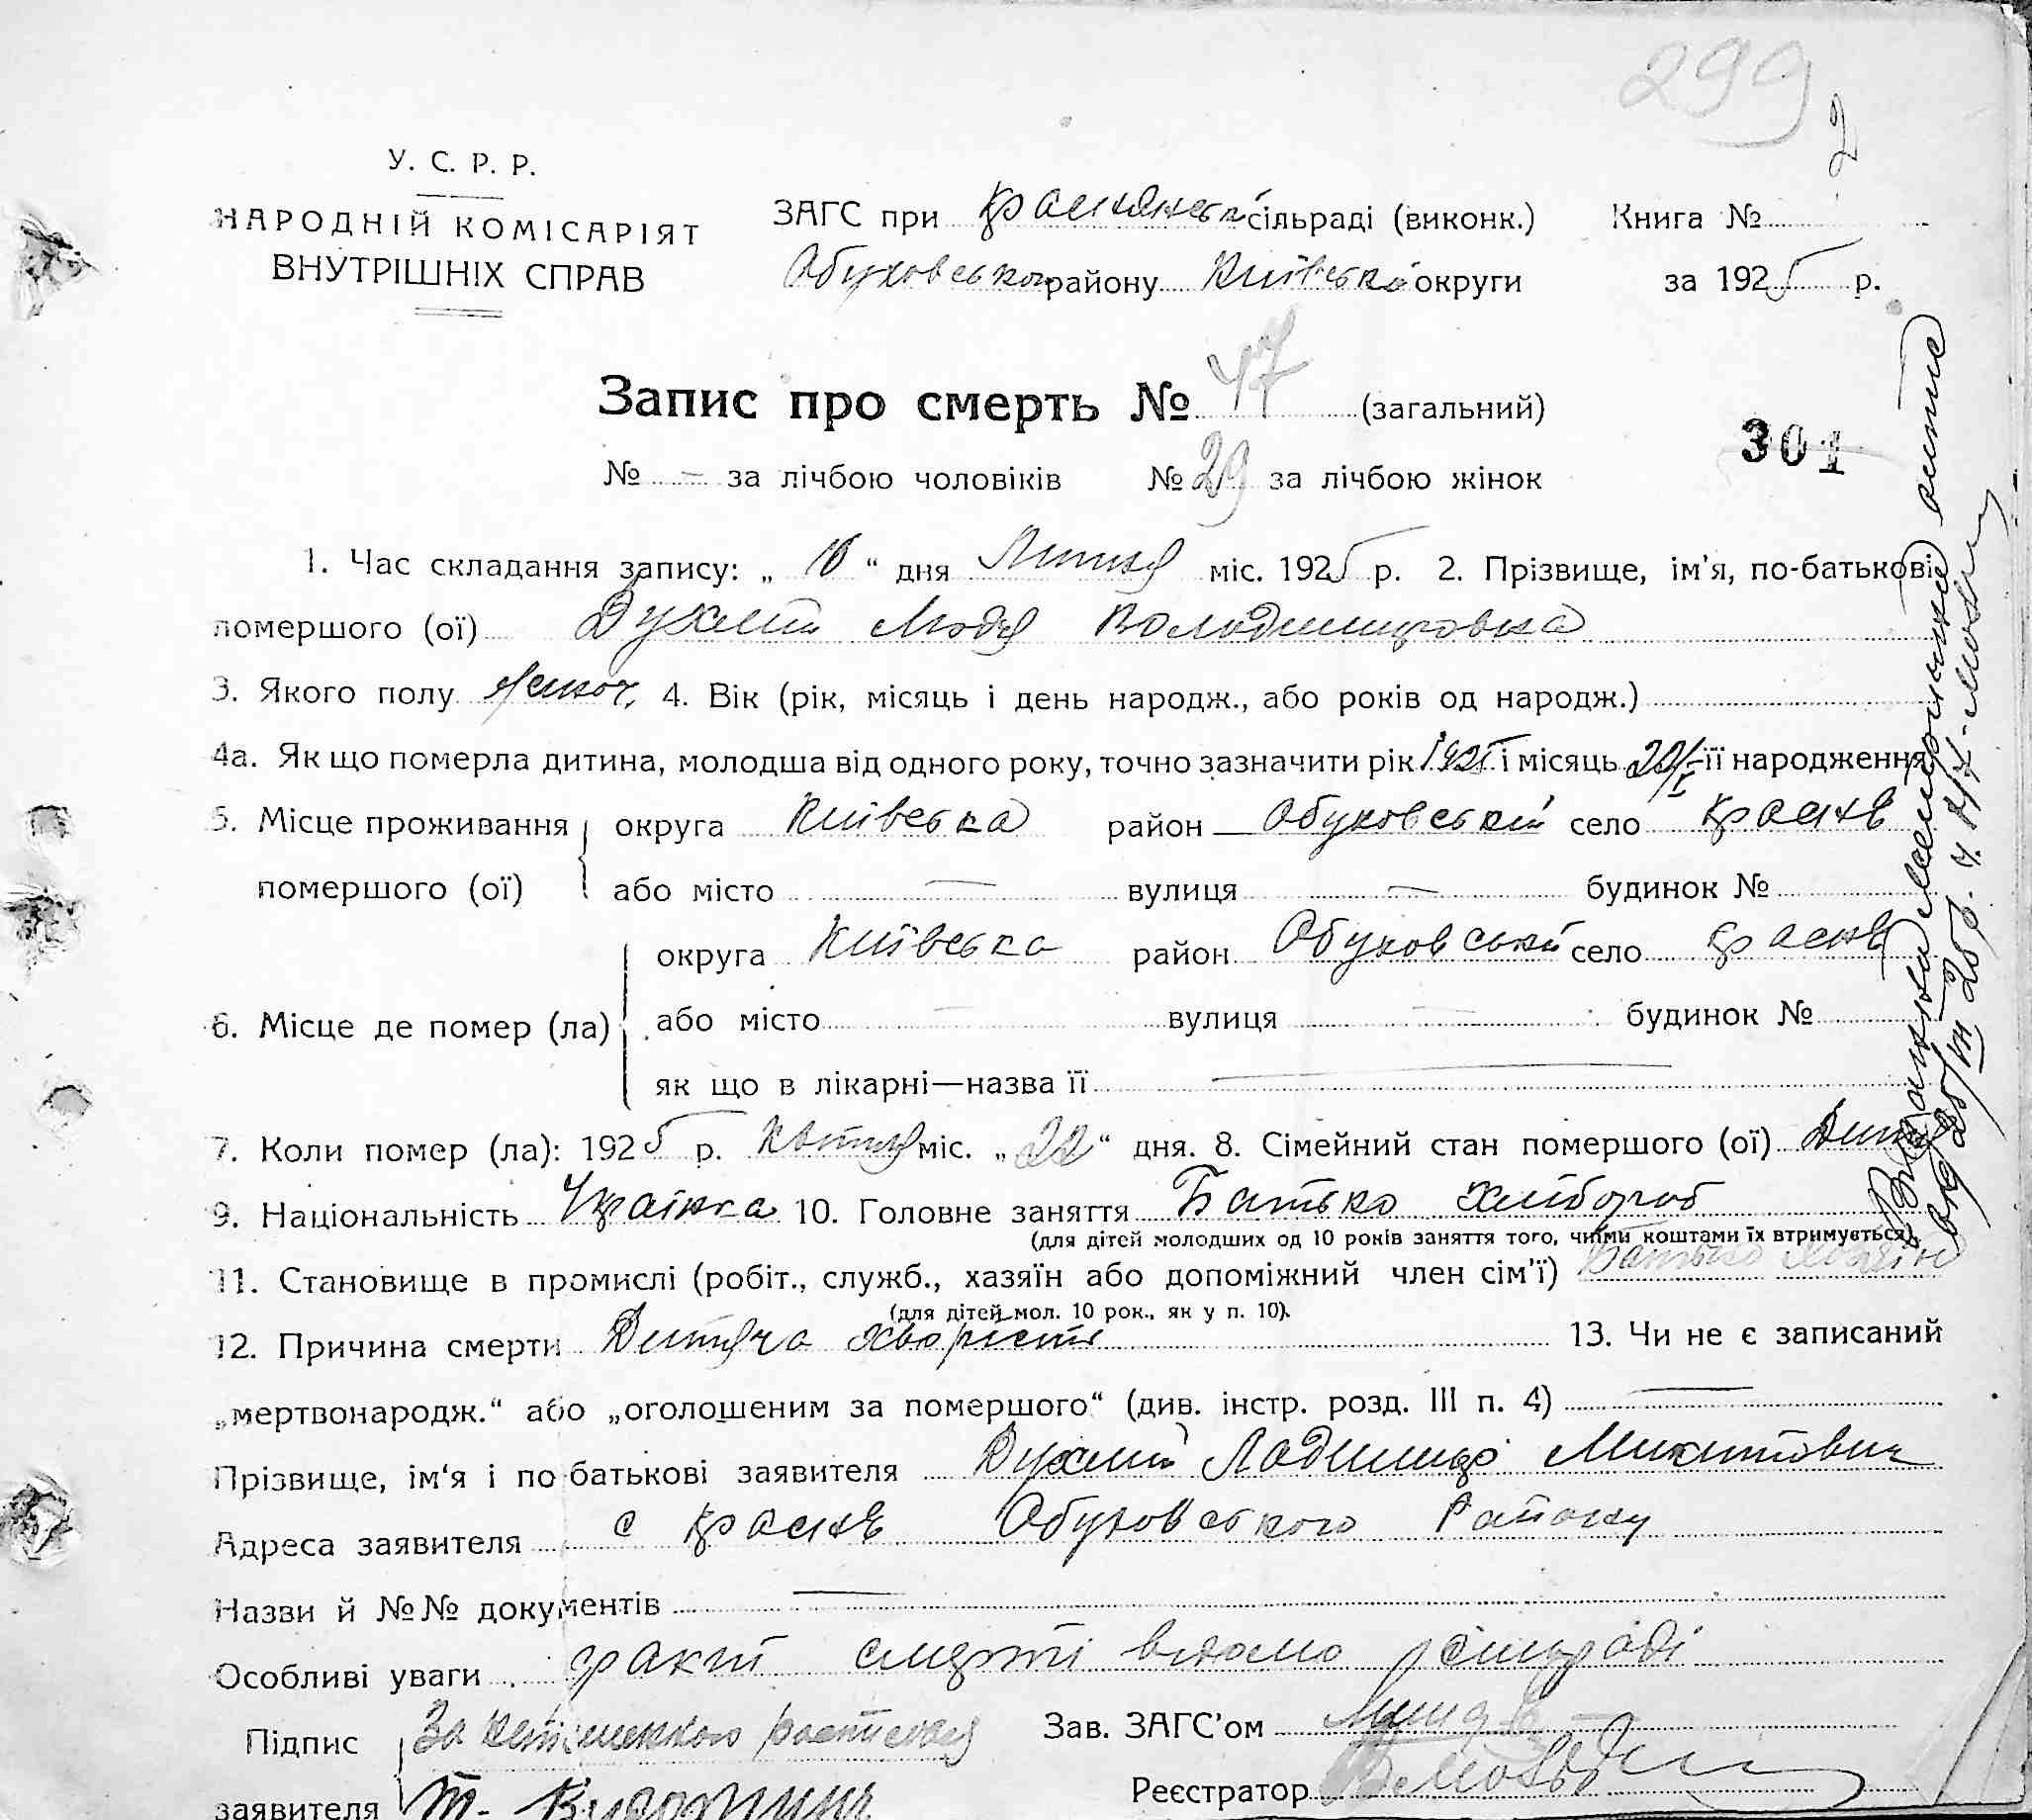 299
2
У. С. Р. Р.
НАРОДНІЙ КОМІСАРІЯТ
ВНУТРІШНІХ СПРАВ
ЗАГС при сільраді (виконк.) Книга №
Обуховського району Київської округи за 1925 р.
Запис про смерть № 47 (загальний)
301
№ — за лічбою чоловіків № 29 за лічбою жінок
1. Час складання запису: „ 16 “ дня Липня міс. 1925 р. 2. Прізвище, ім’я, по-батькові
помершого (ої) Духлій Людя Володимировна
3. Якого полу жіноч. 4. Вік (рік, місяць і день народж., або років од народж.)
4а. Як що померла дитина, молодша від одного року, точно зазначити рік 1925 і місяць 20/I її народження
5. Місце проживання помершого (ої) округа Київська район Обуховський село Красне
або місто — вулиця — будинок №
6. Місце де помер (ла) округа Київська район Обуховський село Красне
або місто — вулиця — будинок №
як що в лікарні—назва її —
7. Коли помер (ла): 1925 р. Квітня міс. „ 22 “ дня. 8. Сімейний стан помершого (ої)
9. Національність Українка 10. Головне заняття Батько хлібороб
(для дітей молодших од 10 років заняття того, чиїми коштами їх втримується)
11. Становище в промислі (робіт., служб., хазяїн або допоміжний член сім’ї) Батько хазяїн
(для дітей мол. 10 рок., як у п. 10).
12. Причина смерти Дитяча хворість 13. Чи не є записаний
„мертвонародж.“ або „оголошеним за помершого“ (див. інстр. розд. III п. 4) —
Прізвище, ім‘я і по батькові заявителя Духлій Ладимир Микитович
Адреса заявителя с Красне Обуховського Району
Назви й №№ документів —
Особливі уваги факт смерті відомо сільраді
Підпис заявителя За неписьменного расписался
Зав. ЗАГС’ом
Реєстратор